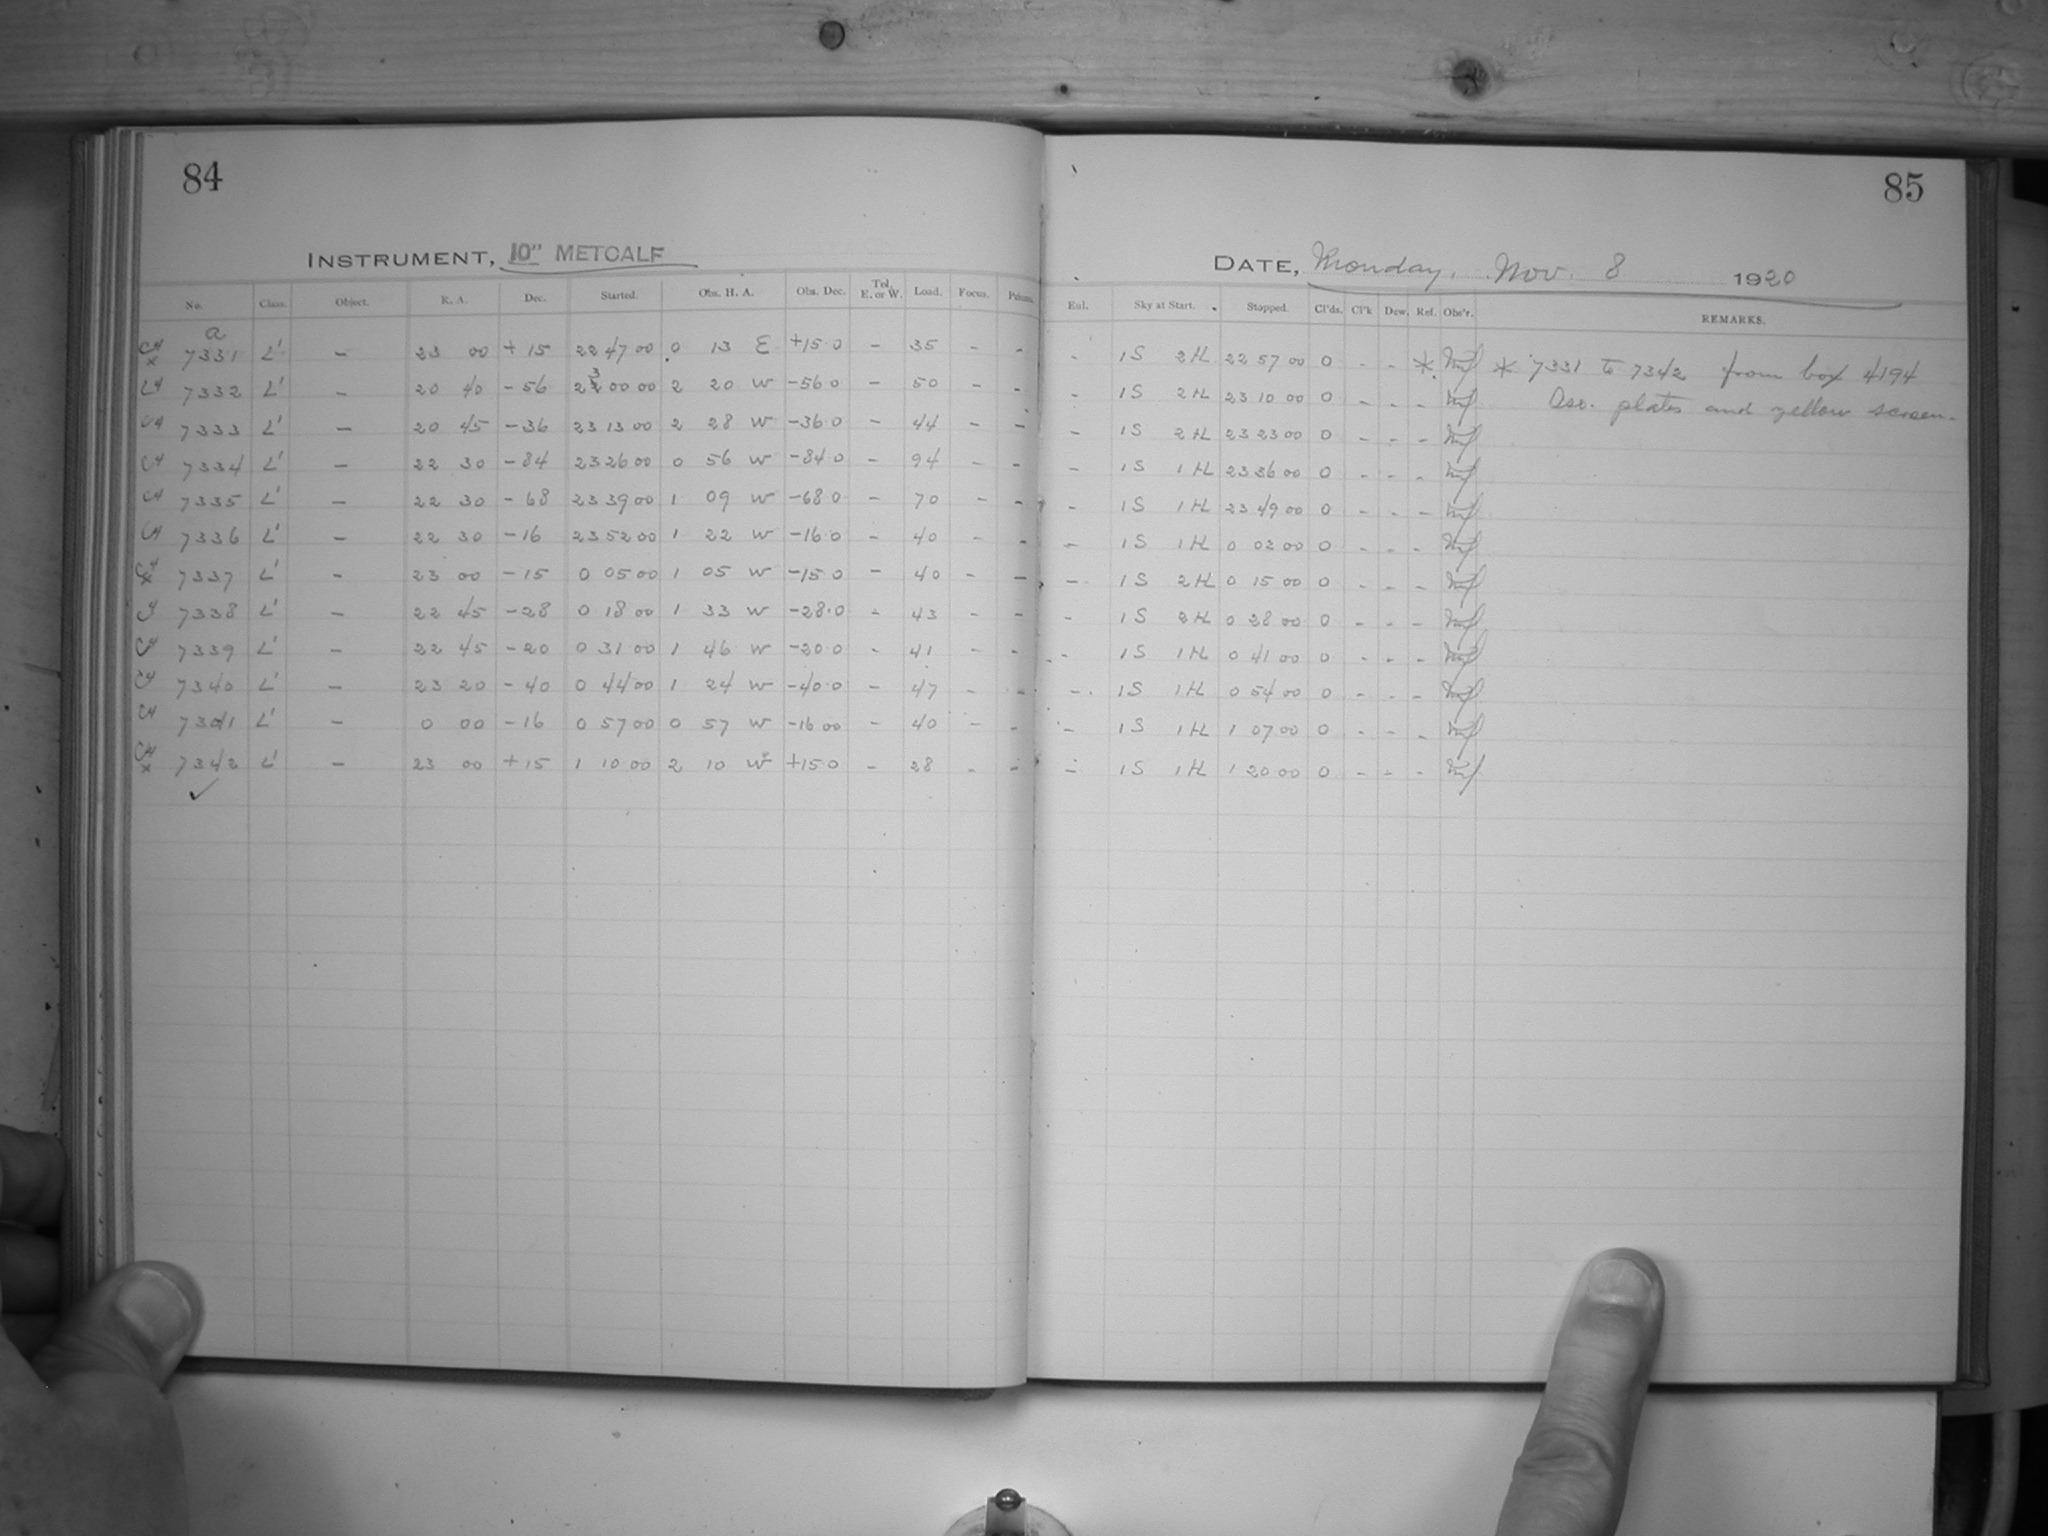 84
INSTRUMENT, 10" METCALF
No. Class. Object. R. A. Dec. Started. Obs. H. A. Obs. Dec. Tel. E. or W. Load. Focus. Prisms.
a
7331 L' - 23 00 + 15 22 47 00 0 13 E +15 0 - 35 - -
7332 L' - 20 40 - 56 23 00 00 2 20 W -56 0 - 50 - -
7333 L' - 20 45 - 36 23 13 00 2 28 W -36 0 - 44 - -
7334 L' - 22 30 - 84 23 26 00 0 56 W -84 0 - 94 - -
7335 L' - 22 30 - 68 23 39 00 1 09 W -68 0 - 70 - -
7336 L' - 22 30 - 16 23 52 00 1 22 W -16 0 - 40 - -
7337 L' - 23 00 - 15 0 05 00 1 05 W -15 0 - 40 - -
7338 L' - 22 45 - 28 0 18 00 1 33 W -28 0 - 43 - -
7339 L' - 22 45 - 20 0 31 00 1 46 W -20 0 - 41 - -
7340 L' - 23 20 - 40 0 44 00 1 24 W -40 0 - 47 - -
7341 L' - 0 00 - 16 0 57 00 0 57 W -16 00 - 40 - -
7342 L' - 23 00 + 15 1 10 00 2 10 W +15 0 - 28 - -
85
DATE, Monday, Nov. 8 1920
Eul. Sky at Start. Stopped. Cl'ds. Cl'k Dew. Ref. Obs'r. REMARKS.
- 1S 2H 22 57 00 0 - - * * 7331 to 7342 from box 4194
- 1S 2H 23 10 00 0 - - - plates and yellow screen.
- 1S 2H 23 23 00 0 - - -
- 1S 1H 23 36 00 0 - - -
- 1S 1H 23 49 00 0 - - -
- 1S 1H 0 02 00 0 - - -
- 1S 2H 0 15 00 0 - - -
- 1S 2H 0 28 00 0 - - -
- 1S 1H 0 41 00 0 - - -
- 1S 1H 0 54 00 0 - - -
- 1S 1H 1 07 00 0 - - -
- 1S 1H 1 20 00 0 - - -